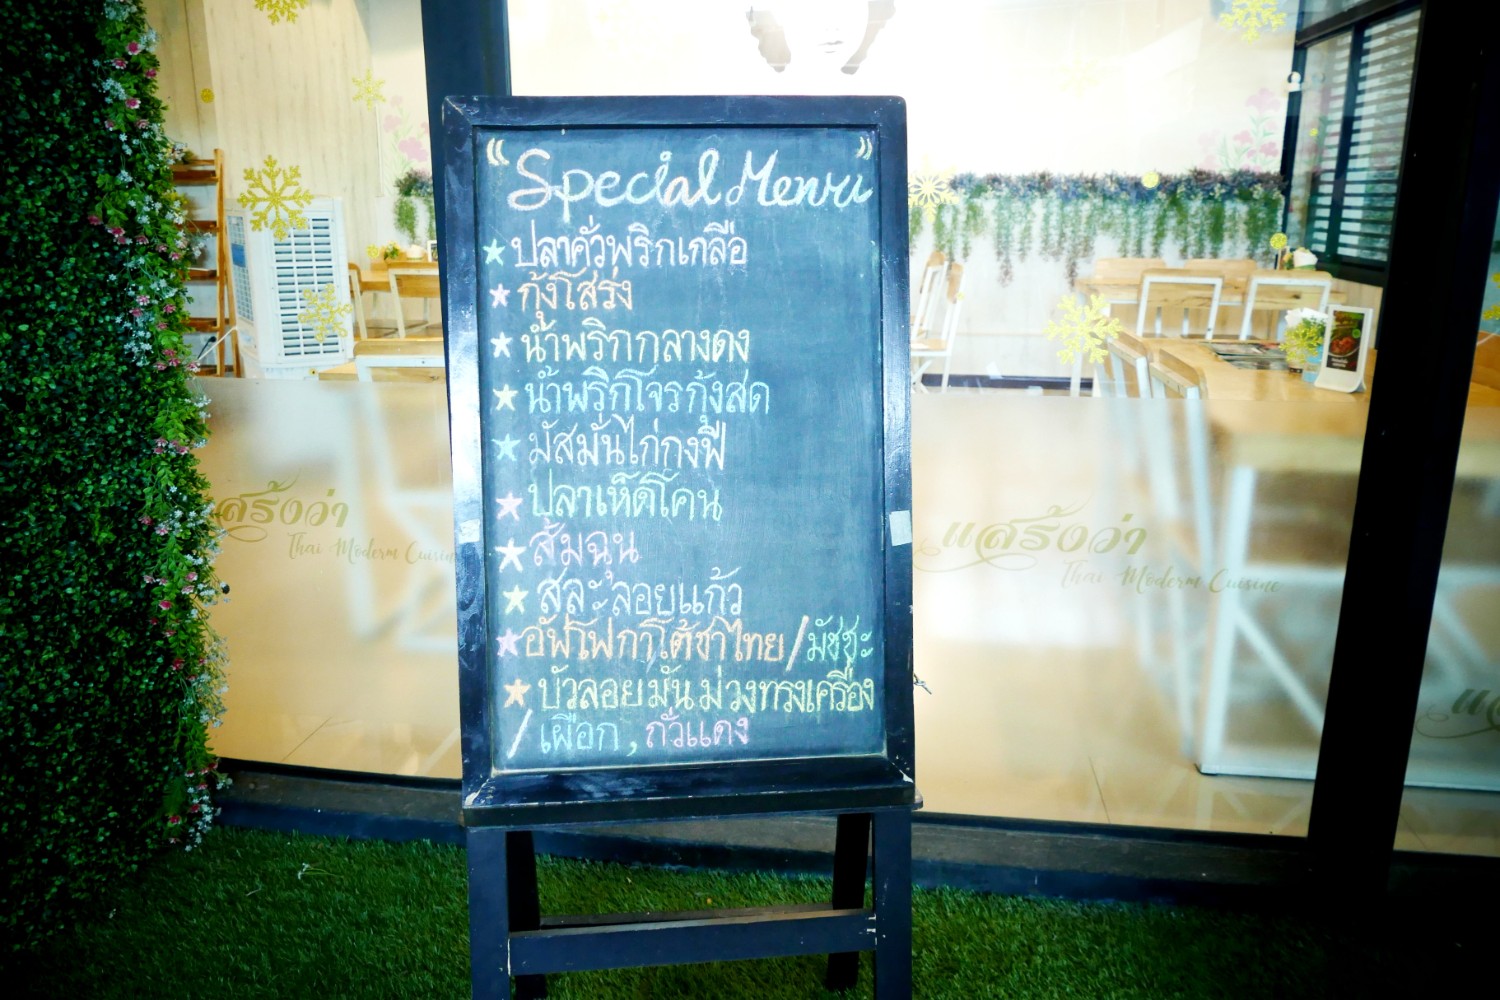 “Special Menu”
★ ปลาคั่วพริกเกลือ
★ กุ้งโสร่ง
★ น้ำพริกกลางดง
★ น้ำพริกโจรกุ้งสด
★ มัสมั่นไก่กงฟี
★ ปลาเห็ดโคน
★ ส้มฉุน
★ สละลอยแก้ว
★ อัฟโฟกาโต้ชาไทย/มัชชะ
★ บัวลอยมันม่วงทรงเครื่อง
/ เผือก, ถั่วแดง
แสร้งว่า
Thai Modern Cuisine
แสร้งว่า
Thai Modern Cuisine